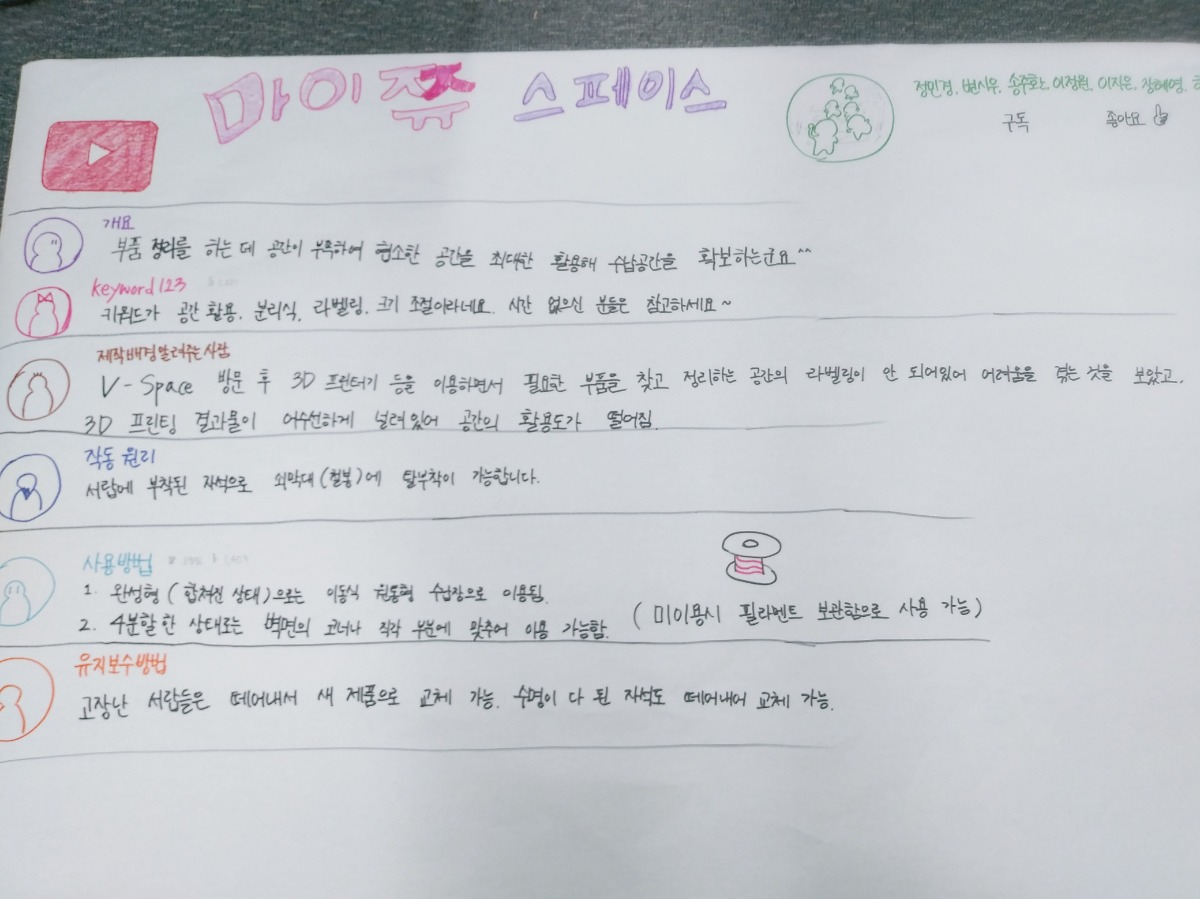 마이쮸 스페이스
정민경, 변시우, 송주환, 이정원, 이지은, 장혜영,
구독 좋아요
개요
부품 정리를 하는 데 공간이 부족하여 협소한 공간을 최대한 활용해 수납공간을 확보하는군요^^
keyword123
키워드가 공간 활용, 분리식, 라벨링, 크기 조절이라네요. 시간 없으신 분들은 참고하세요~
제작배경알려주는사람
V-Space 방문 후 3D 프린터기 등을 이용하면서 필요한 부품을 찾고 정리하는 공간의 라벨링이 안 되어있어 어려움을 겪는 것을 보았고,
3D 프린팅 결과물이 어수선하게 널려있어 공간의 활용도가 떨어짐.
작동 원리
서랍에 부착된 자석으로 쇠막대(철봉)에 탈부착이 가능합니다.
사용방법
1. 완성형 (합쳐진 상태)으로는 이동식 원통형 수납장으로 이용됨.
2. 4분할 한 상태로는 벽면의 코너나 직각 부분에 맞추어 이용 가능함.
(미이용시 필라멘트 보관함으로 사용 가능)
유지보수방법
고장난 서랍들은 떼어내서 새 제품으로 교체 가능. 수명이 다 된 자석도 떼어내어 교체 가능.